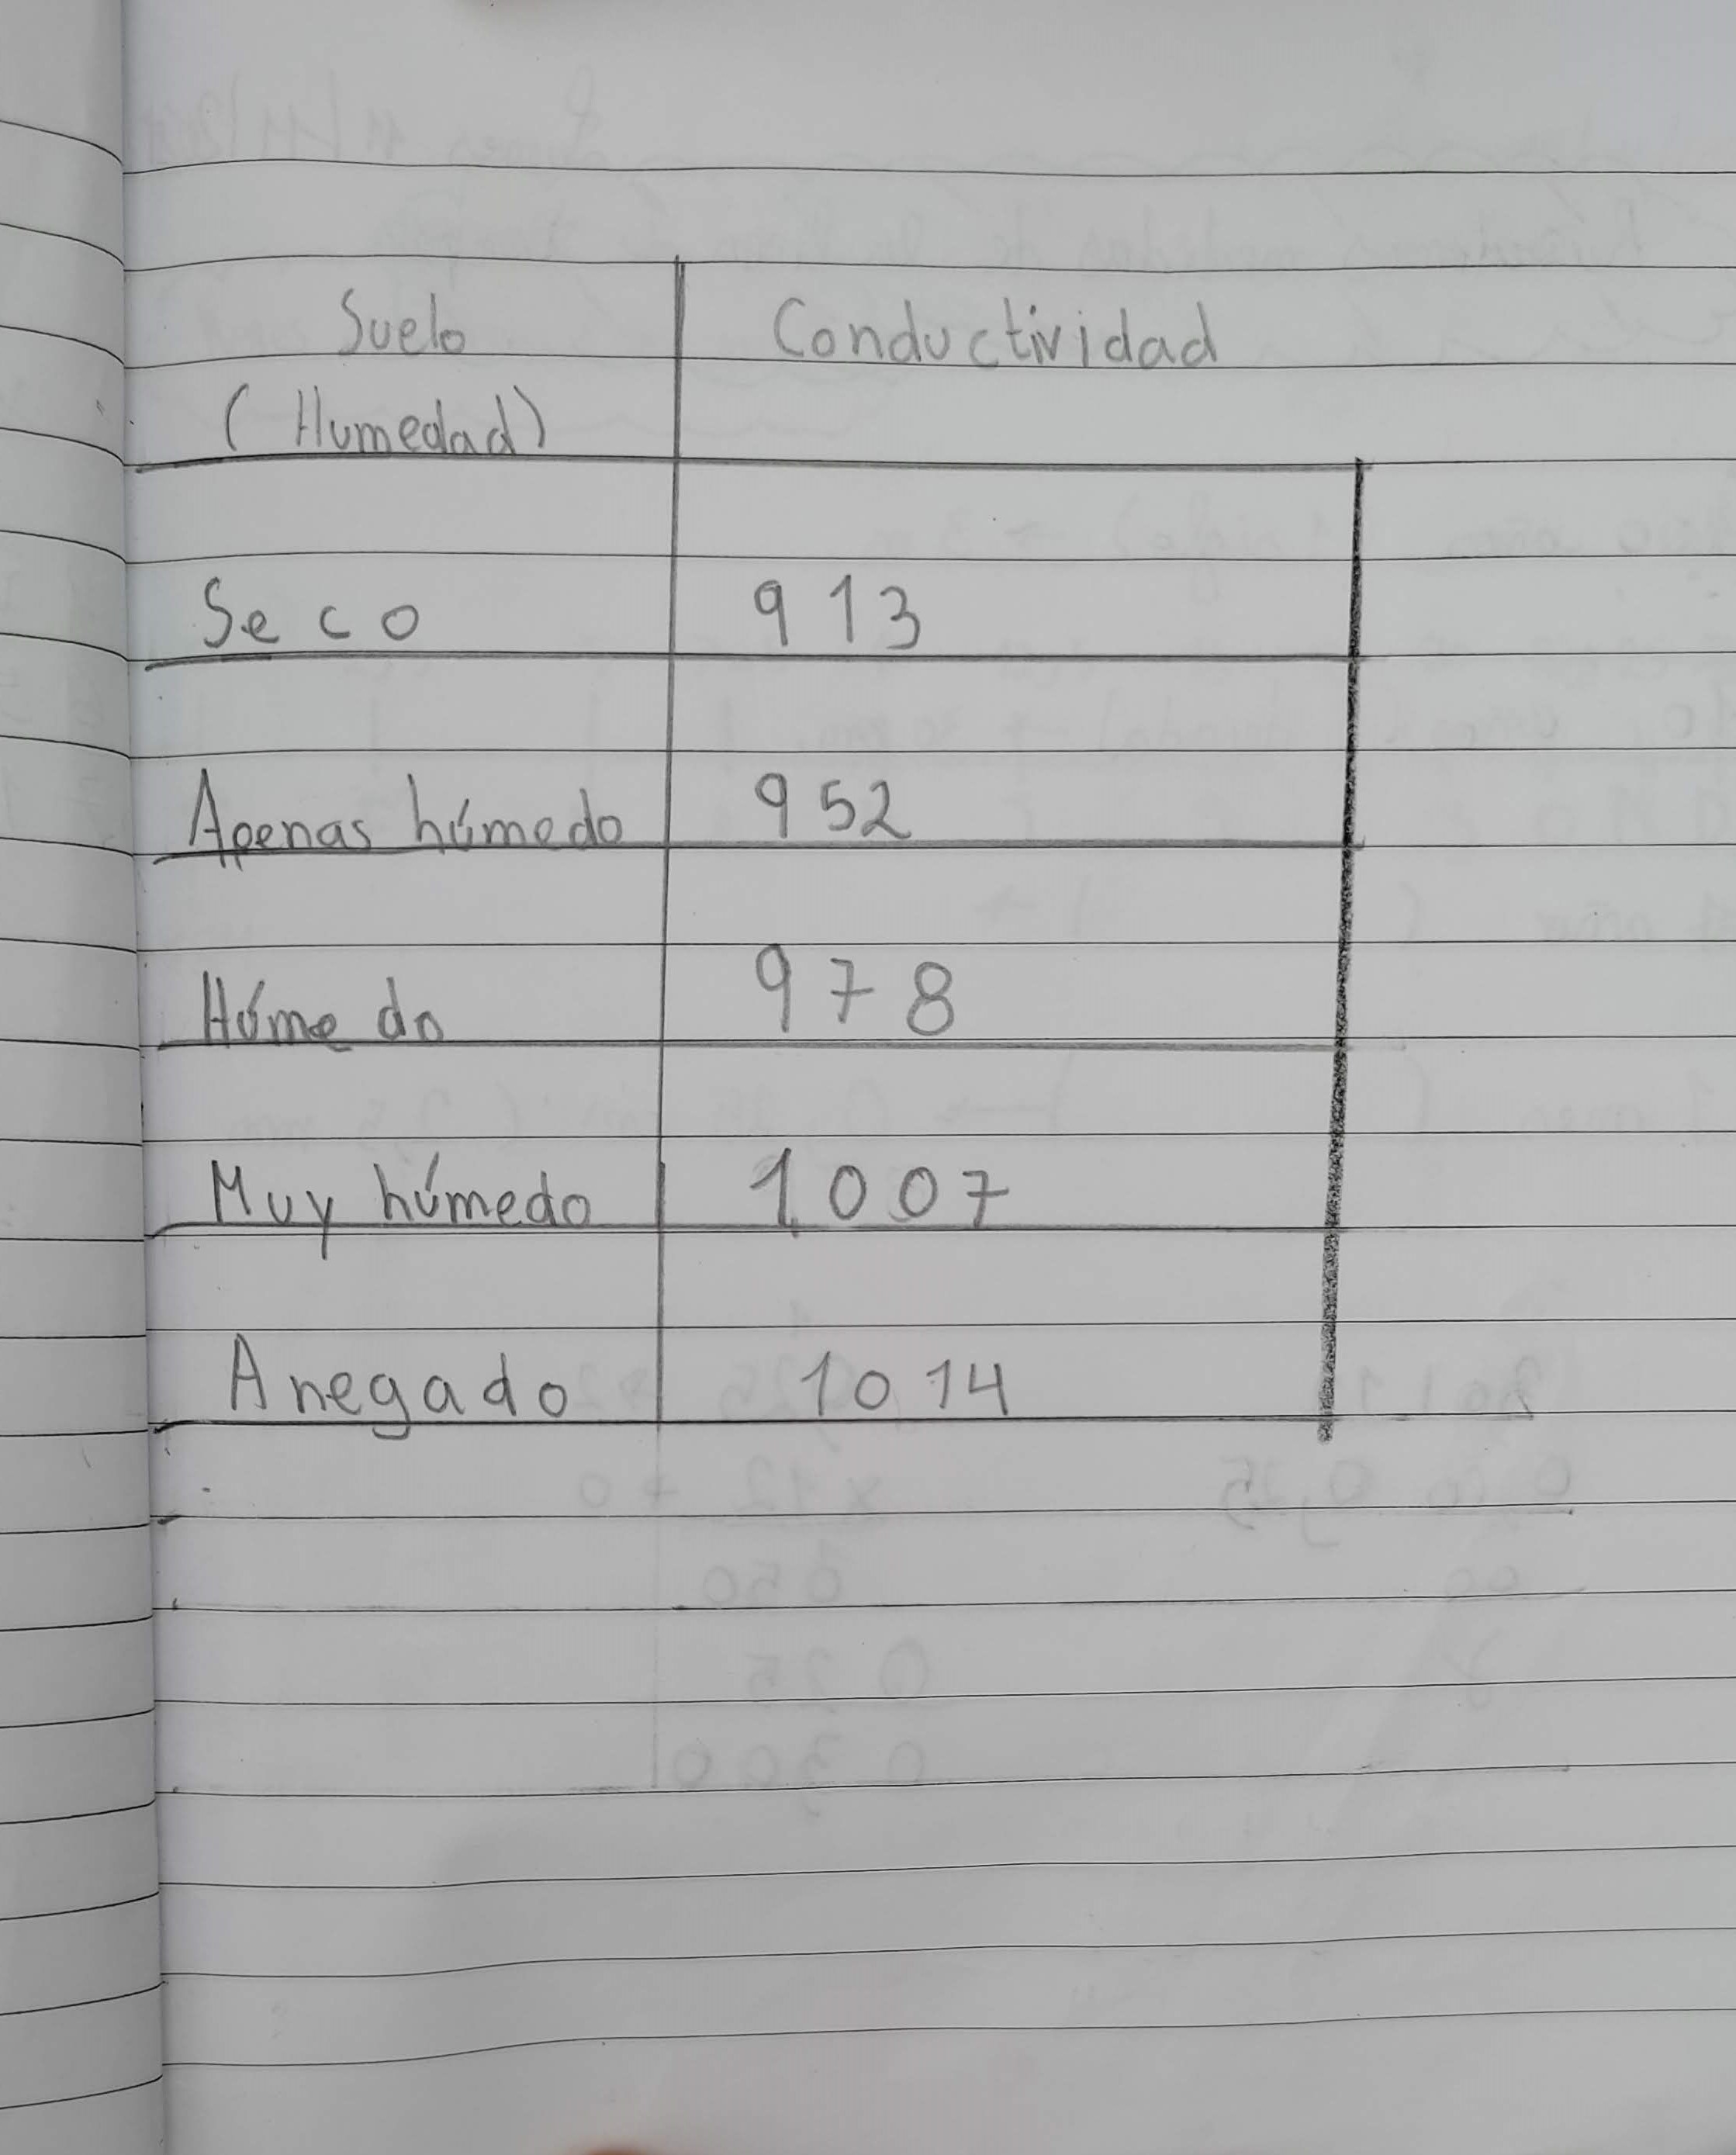 Suelo Conductividad
(Humedad)
Seco 913
Apenas húmedo 952
Húmedo 978
Muy húmedo 1007
Anegado 1014